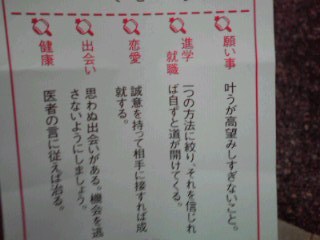 願い事
叶うが高望みしすぎないこと。
進学
就職
一つの方法に絞り、それを信じれ
ば自ずと道が開けてくる。
恋愛
誠意を持って相手に接すれば成
就する。
出会い
思わぬ出会いがある。機会を逃
さないようにしましょう。
健康
医者の言に従えば治る。